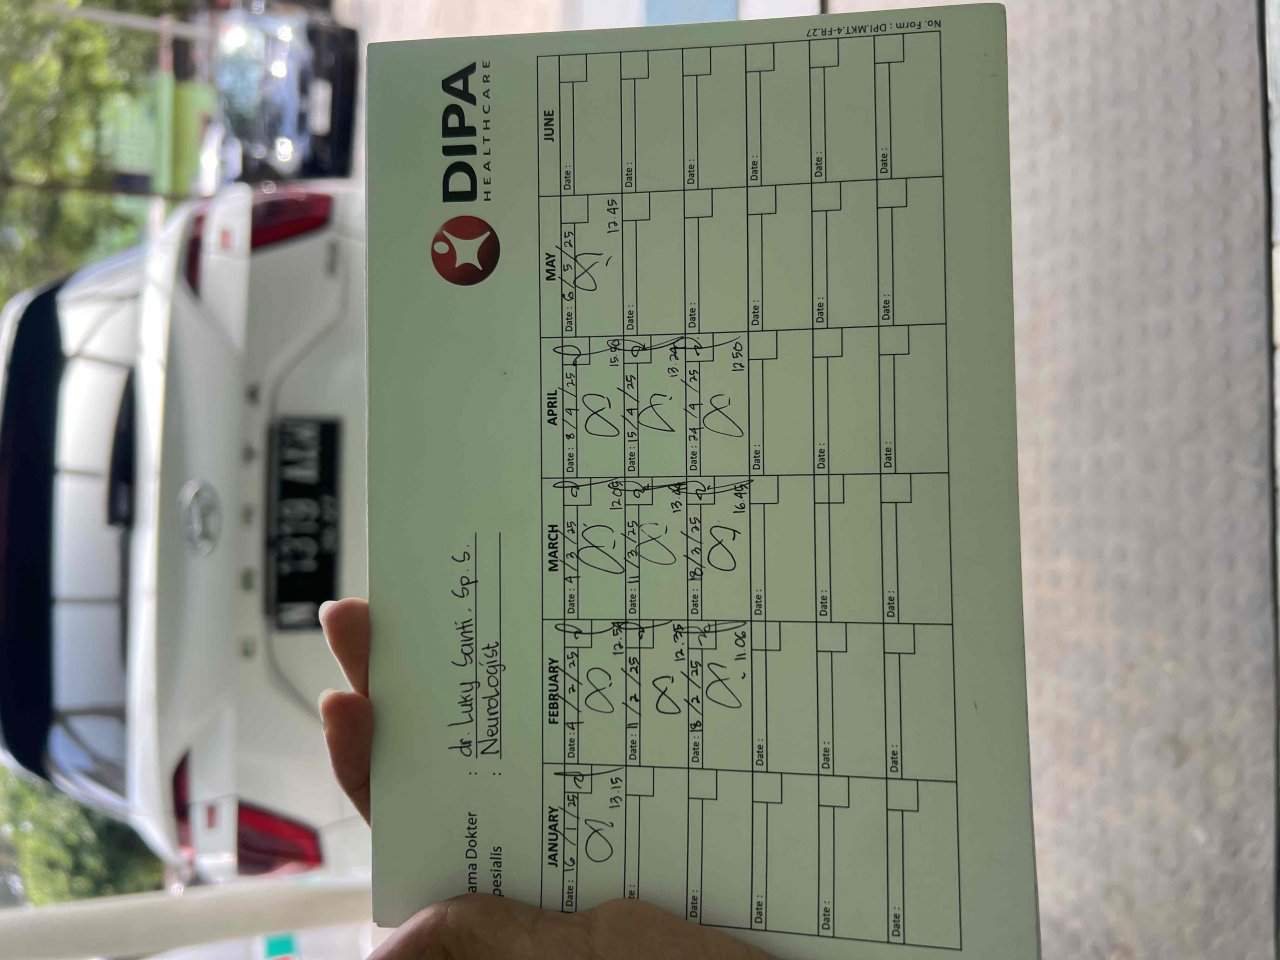 DIPA
HEALTHCARE
ama Dokter : dr. Luky Santi, Sp. S.
pesialis : Neurologist
JANUARY FEBRUARY MARCH APRIL MAY JUNE
Date : 16/1/25 Date : 4/2/25 Date : 4/3/25 Date : 8/4/25 Date : 6/5/25 Date :
13.15 12.45
te : Date : 11/2/25 Date : 11/3/25 Date : 15/4/25 Date : Date :
12.35
Date : Date : 18/2/25 Date : 18/3/25 Date : 24/4/25 Date : Date :
11.06 16.45 1250
Date : Date : Date : Date : Date : Date :
Date : Date : Date : Date : Date : Date :
Date : Date : Date : Date : Date : Date :
No. Form : DPI.MKT.4-FR.27